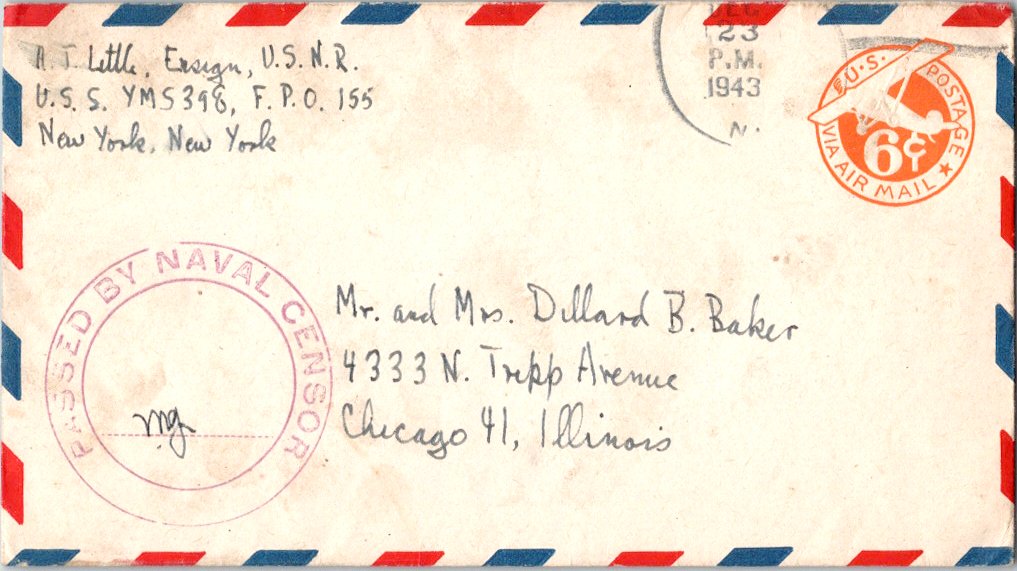 A. J. Little, Ensign, U.S.N.R.
U.S.S. YMS 398, F.P.O. 155
New York, New York
DEC
23
P.M.
1943
N.
U.S. POSTAGE
6¢
VIA AIR MAIL
PASSED BY NAVAL CENSOR
Mr. and Mrs. Dillard B. Baker
4333 N. Tripp Avenue
Chicago 41, Illinois